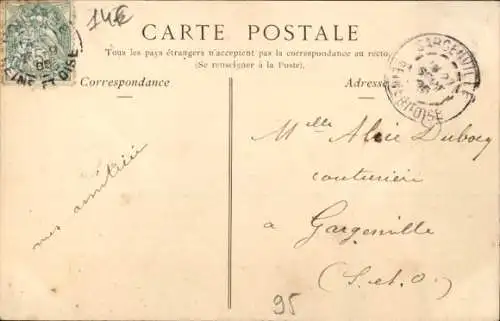 14€
CARTE POSTALE
Tous les pays étrangers n'acceptent pas la correspondance au recto.
(Se renseigner à la Poste).
Correspondance
Adresse
GARGENVILLE
SEINE ET OISE
Mlle Alice Dubocq
couturière
à Gargenville
(S. et O.)
mes amitiés
95